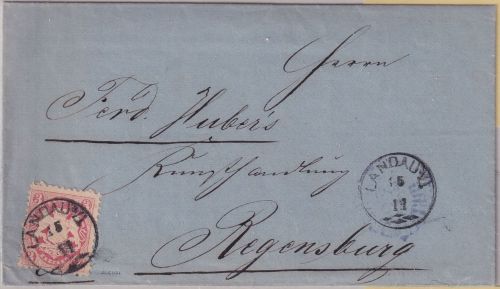 Herrn
Ferd. Huber's
Kunsthandlung
Regensburg
LANDAU
LANDAU